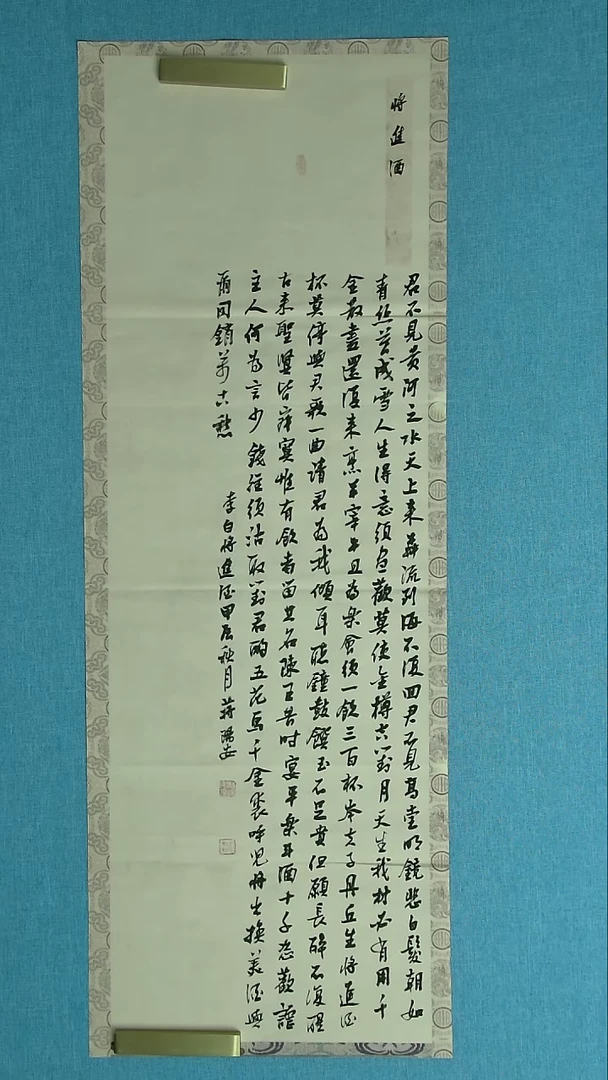 將進酒
君不見黄河之水天上来奔流到海不復回君不見高堂明鏡悲白髮朝如
青丝暮成雪人生得意須盡歡莫使金樽空對月天生我材必有用千
金散盡還復来烹羊宰牛且為楽會須一飲三百杯岑夫子丹丘生將進酒
杯莫停與君歌一曲請君為我傾耳聴鐘鼓饌玉不足貴但願長醉不復醒
古来聖賢皆寂寞惟有飲者留其名陳王昔时宴平楽斗酒十千恣歡謔
主人何為言少錢徑須沽取對君酌五花馬千金裘呼児将出換美酒與
爾同銷萬古愁
李白將進酒甲辰秋月蒋